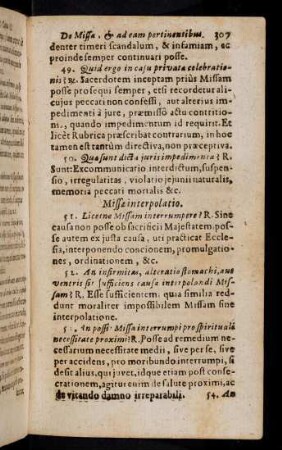 De Missa, & ad eam pertinentibus. 307
denter timeri scandalum, & infamiam, ac
proinde semper continuati posse.
49. Quid ergo in casu privata celebratio-
nis? R. Sacerdotem inceptam priùs Missam
posse prosequi semper, etsi recordetur ali-
cujus peccati non confessi, aut alterius im-
pedimenti à jure, præmisso actu contritio-
nis, quando impedimentum id requirit. Et
licèt Rubrica præscribat contrarium, in hoc
tamen est tantùm directiva, non præceptiva.
50. Quæ sunt dicta juris impedimenta? R.
Sunt: Excommunicatio, interdictum, suspen-
sio, irregularitas, violatio jejunii naturalis,
memoria peccati mortalis &c.
Missæ interpolatio.
51. Licetne Missam interrumpere? R. Sine
causa non posse ob sacrificii Majestatem: pos-
se autem ex justa causa, uti practicat Eccle-
sia, interponendo concionem, promulgatio-
nes, ordinationem, &c.
52. An infirmitas, alteratio stomachi, aut
veneris sit sufficiens causa interpolandi Mis-
sam? R. Esse sufficientem, quia similia red-
dunt moraliter impossibilem Missam sine
interpolatione.
53. An possit Missa interrumpi pro spirituali
necessitate proximi? R. Posse ad remedium ne-
cessarium necessitate medii, sive per se, sive
per accidens, pro moribundo interrumpi, si
desit alius, qui juvet, idque etiam post conse-
crationem, agitur enim de salute proximi, ac
de vitando damno irreparabili. 54. An